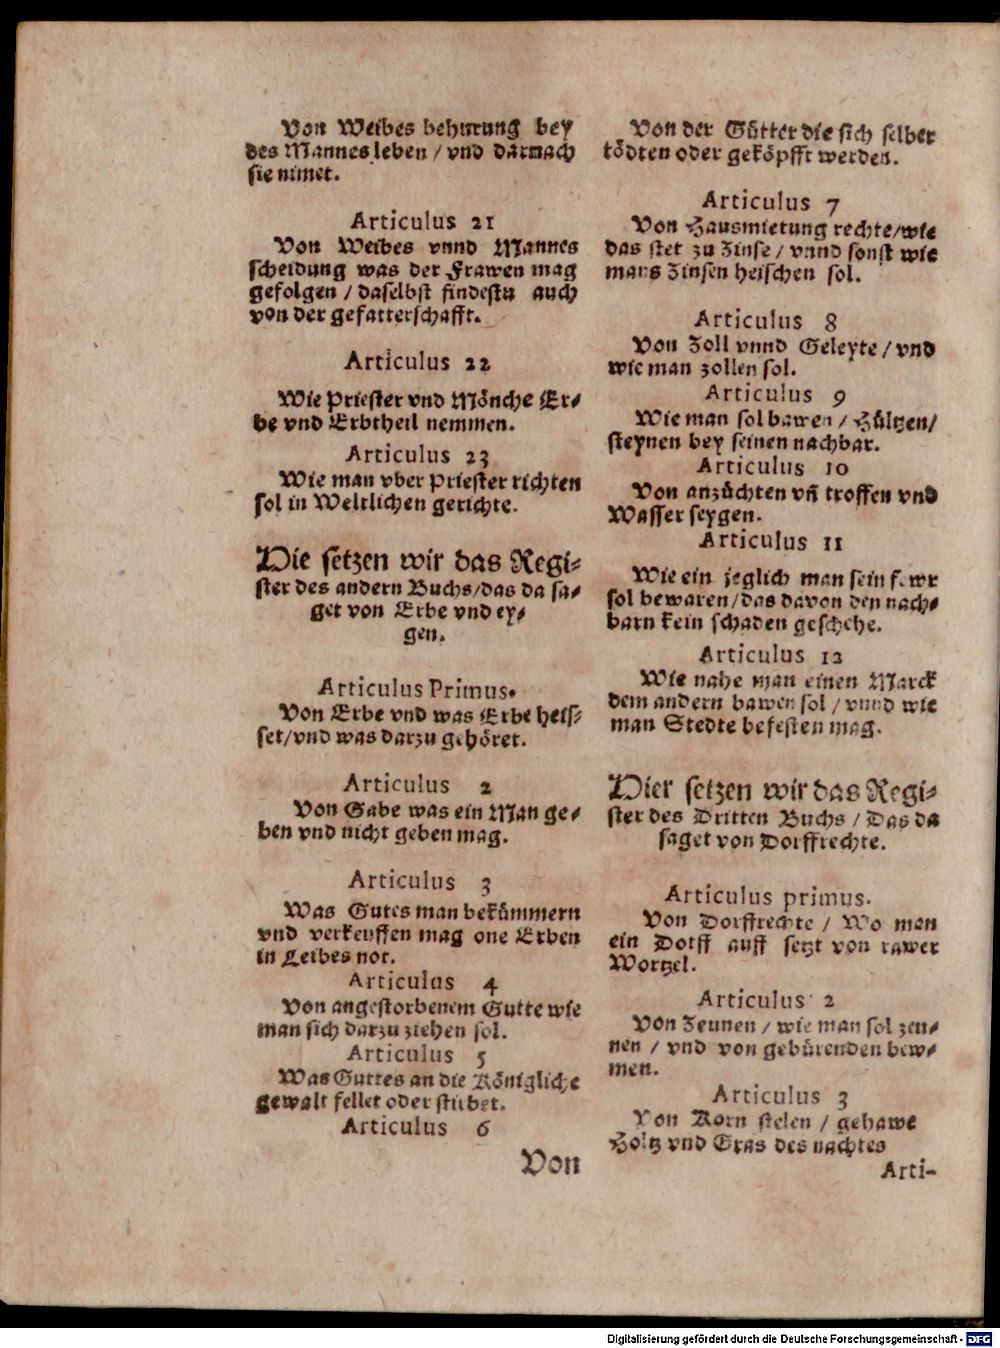 Von Weibes behurung bey
des Mannes leben / vnd darnach
sie nimet.
Articulus 21
Von Weibes vnnd Mannes
scheidung was der Frawen mag
gefolgen / daselbst findestu auch
von der gefatterschafft.
Articulus 22
Wie Priester vnd Mönche Er⸗
be vnd Erbtheil nemmen.
Articulus 23
Wie man vber Priester richten
sol in Weltlichen gerichte.
Die setzen wir das Regi⸗
ster des andern Buchs/das da sa⸗
get von Erbe vnd ey⸗
gen.
Articulus Primus.
Von Erbe vnd was Erbe heis⸗
set/vnd was darzu gehöret.
Articulus 2
Von Gabe was ein Man ge⸗
ben vnd nicht geben mag.
Articulus 3
Was Gutes man bekümmern
vnd verkeuffen mag one Erben
in Leibes not.
Articulus 4
Von angestorbenem Gutte wie
man sich darzu ziehen sol.
Articulus 5
Was Guttes an die Königliche
gewalt fellet oder stirbet.
Articulus 6
Von
Von der Gütter die sich selber
tödten oder geköpfft werden.
Articulus 7
Von Hausmietung rechte/wie
das stet zu Zinse / vnnd sonst wie
mans Zinsen heischen sol.
Articulus 8
Von Zoll vnnd Geleyte / vnd
wie man zollen sol.
Articulus 9
Wie man sol bawen / Hültzen/
steynen bey seinen nachbar.
Articulus 10
Von anzüchten vñ troffen vnd
Wasser seygen.
Articulus 11
Wie ein jeglich man sein fewr
sol bewaren/das davon den nach⸗
barn kein schaden geschehe.
Articulus 12
Wie nahe man einen Marck
dem andern bawen sol / vnnd wie
man Stedte befesten mag.
Hier setzen wir das Regi⸗
ster des Dritten Buchs / Das da
saget von Dorffrechte.
Articulus primus.
Von Dorffrechte / Wo man
ein Dorff auff setzt von rawer
Wortzel.
Articulus 2
Von Zeunen / wie man sol zeu⸗
nen / vnd von gebürenden bew⸗
men.
Articulus 3
Von Korn stelen / gehawe
Holtz vnd Gras des nachtes
Arti-
Digitalisierung gefördert durch die Deutsche Forschungsgemeinschaft - DFG